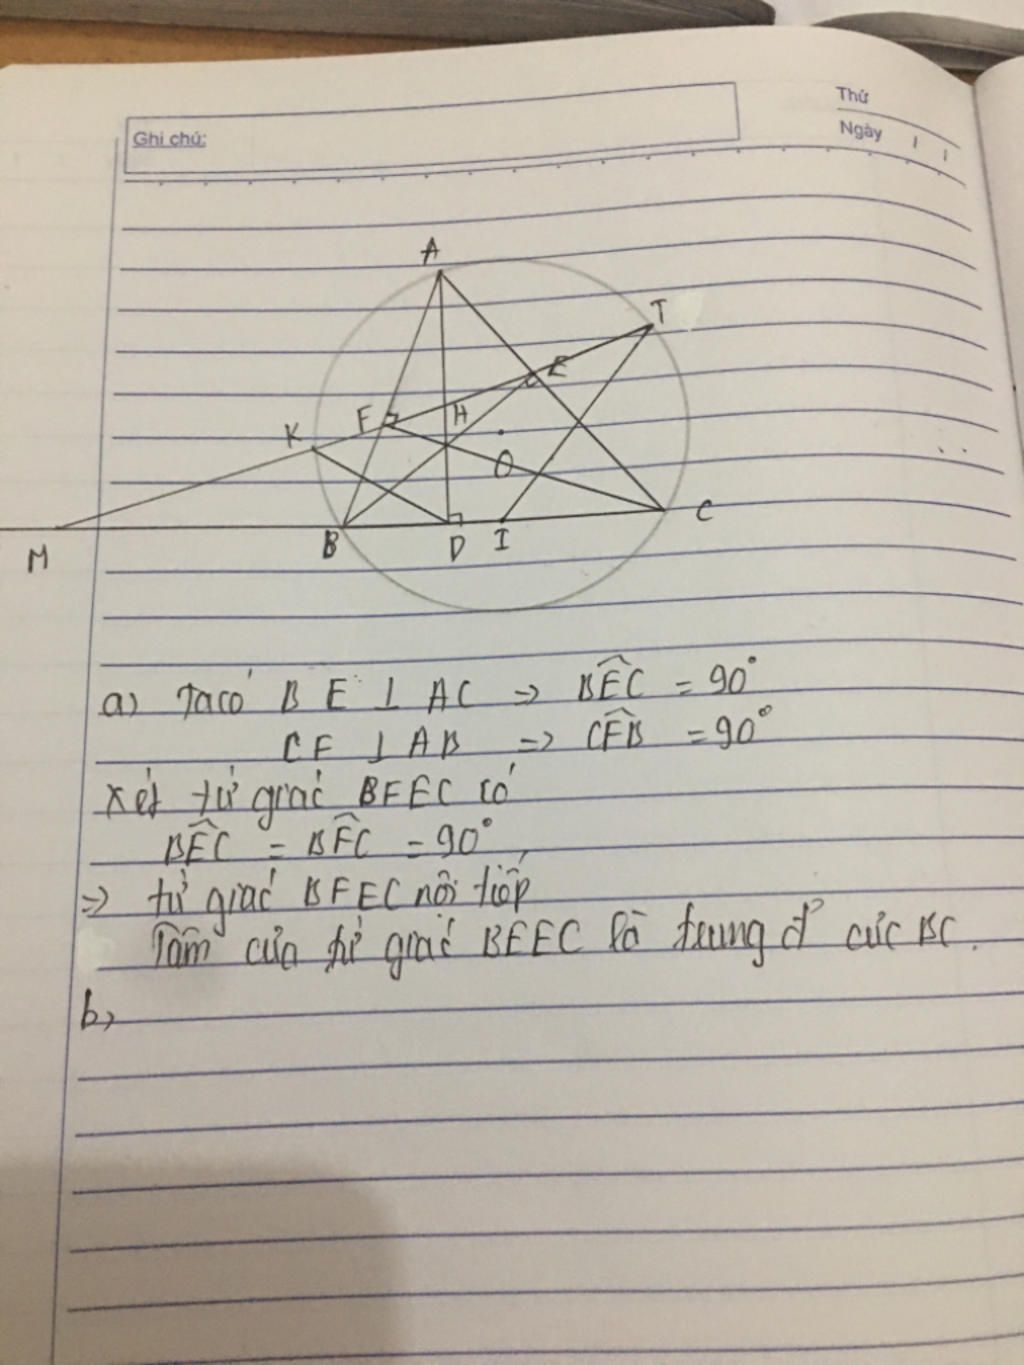 Thứ
Ghi chú:
Ngày / /
A
T
E
F
H
K
O
C
M
B
D
I
a) Ta có BE ⊥ AC => BÊC = 90°
CF ⊥ AB => CF̂B = 90°
Xét tứ giác BFEC có
BÊC = BF̂C = 90°
=> tứ giác BFEC nội tiếp
Tâm của tứ giác BFEC là trung đ' của BC.
b,